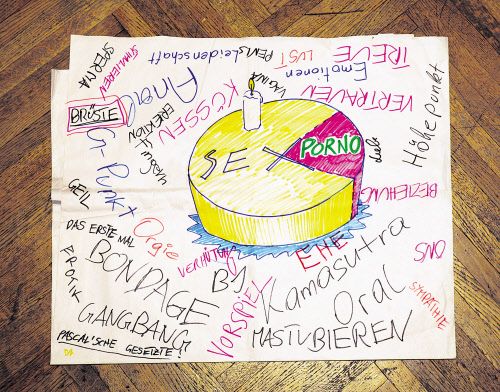 SPERMA
STIMULIEREN
PENIS
Leidenschaft
LUST
Emotionen
TREUE
VAGINA
VERTRAUEN
Höhepunkt
BRÜSTE
Anal
KÜSSEN
EREKTION
G-PUNKT
SEX
PORNO
Liebe
BEZIEHUNG
GEIL
DAS ERSTE MAL
Orgie
EROTIK
BONDAGE
VERHÜTUNG
EHE
BJ
Kamasutra
ONS
SYMPATHIE
GANGBANG
VORSPIEL
Oral
MASTUBIEREN
PASCAL'SCHE GESETZTE!